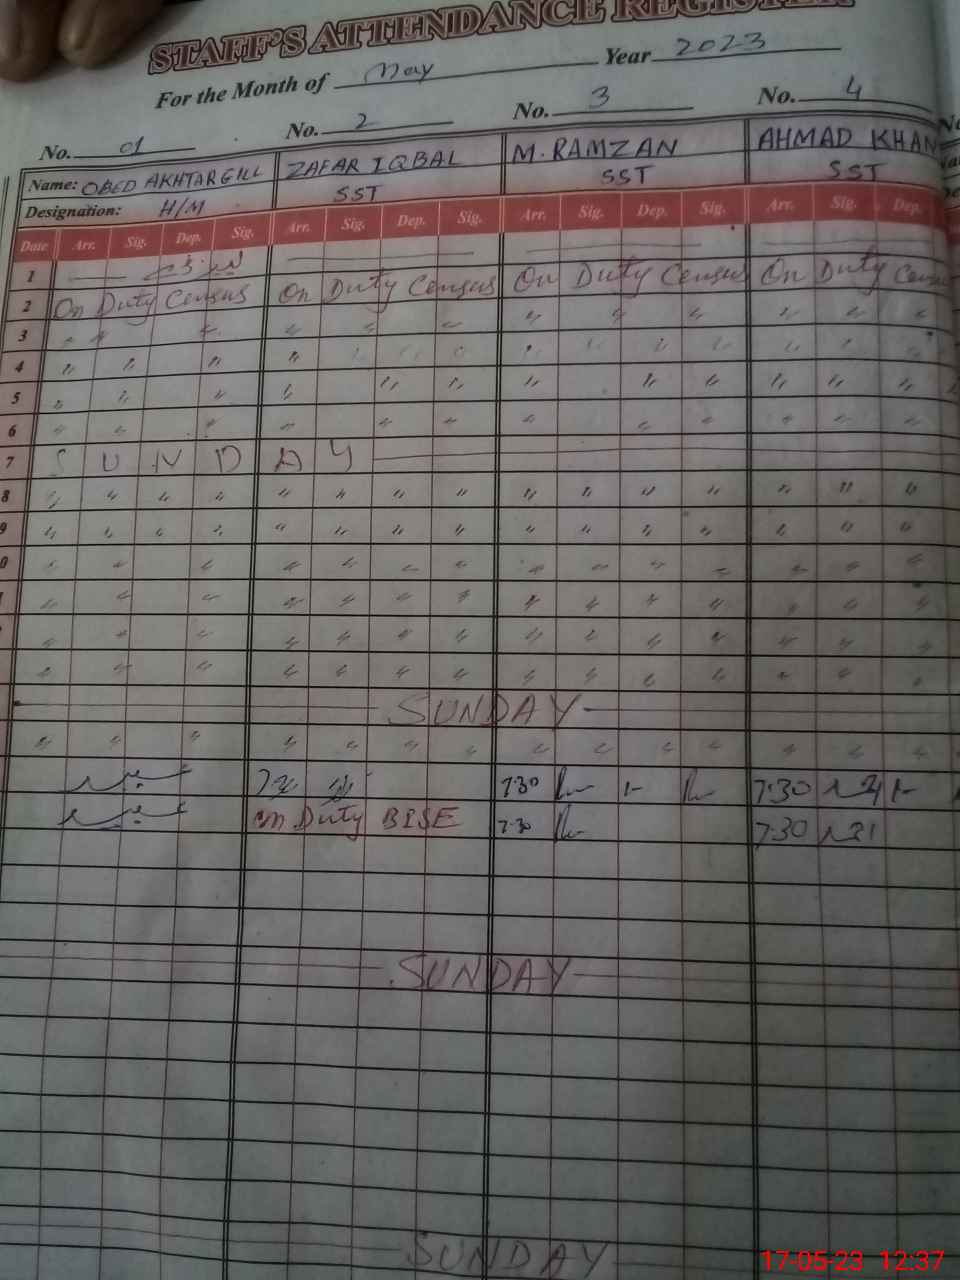 STAFF'S ATTENDANCE REGISTER
For the Month of May Year 2023
No. 01 No. 2 No. 3 No. 4
Name: OBED AKHTAR GILL ZAFAR IQBAL M. RAMZAN AHMAD KHAN
Designation: H/M SST SST SST
Date Arr. Sig. Dep. Sig. Arr. Sig. Dep. Sig. Arr. Sig. Dep. Sig. Arr. Sig. Dep.
1
2 On Duty Census On Duty Census On Duty Census On Duty Census
3 〃 〃 〃 〃 〃 〃 〃 〃 〃 〃 〃
4 〃 〃 〃 〃 〃 〃 〃 〃 〃 〃 〃 〃 〃 〃
5 〃 〃 〃 〃 〃 〃 〃 〃 〃 〃 〃 〃
6 〃 〃 〃 〃 〃 〃 〃 〃 〃 〃 〃 〃
7 SUNDAY
8 〃 〃 〃 〃 〃 〃 〃 〃 〃 〃 〃 〃 〃 〃 〃
9 〃 〃 〃 〃 〃 〃 〃 〃 〃 〃 〃 〃 〃 〃 〃
0 〃 〃 〃 〃 〃 〃 〃 〃 〃 〃 〃 〃 〃 〃
〃 〃 〃 〃 〃 〃 〃 〃 〃 〃 〃 〃 〃 〃
〃 〃 〃 〃 〃 〃 〃 〃 〃 〃 〃 〃 〃 〃
〃 〃 〃 〃 〃 〃 〃 〃 〃 〃 〃 〃 〃 〃
SUNDAY
〃 〃 〃 〃 〃 〃 〃 〃 〃 〃 〃 〃 〃 〃
7:30 7:30
On Duty BISE 7:30 7:30
SUNDAY
SUNDAY
17-05-23 12:37